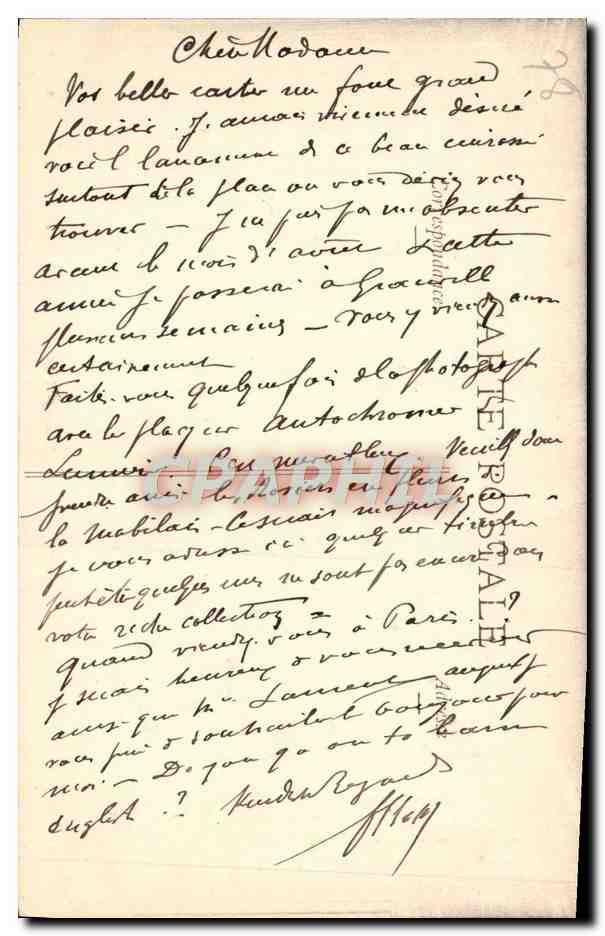 Chère Madame
Vos belles cartes me font grand
plaisir. J'aurais vivement désiré
voir l de ce beau cuirassé
surtout de la place où vous deviez vous
trouver — Je ne puis pas m'absenter
avant le mois d'août Cette
année je passerai à Granville
plusieurs semaines — Vous y viendrez aussi
certainement
Faites-vous quelquefois de la photograph
avec les plaques autochromes
Lumière C'est merveilleux Veuillez donc
prendre ainsi les Rosiers en fleurs de
la magnifique
je vous adresse ici quelques timbres
peut être quelques uns ne sont pas encore dans
votre riche collection =
Quand viendrez-vous à Paris ?
Je serais heureux de vous
ainsi que Mr Laurent auquel je
vous prie de souhaiter bonjour pour
moi — Do you go on to learn
english ? Kindest Regards
CARTE POSTALE
Correspondance
Adresse
CPAPHIL